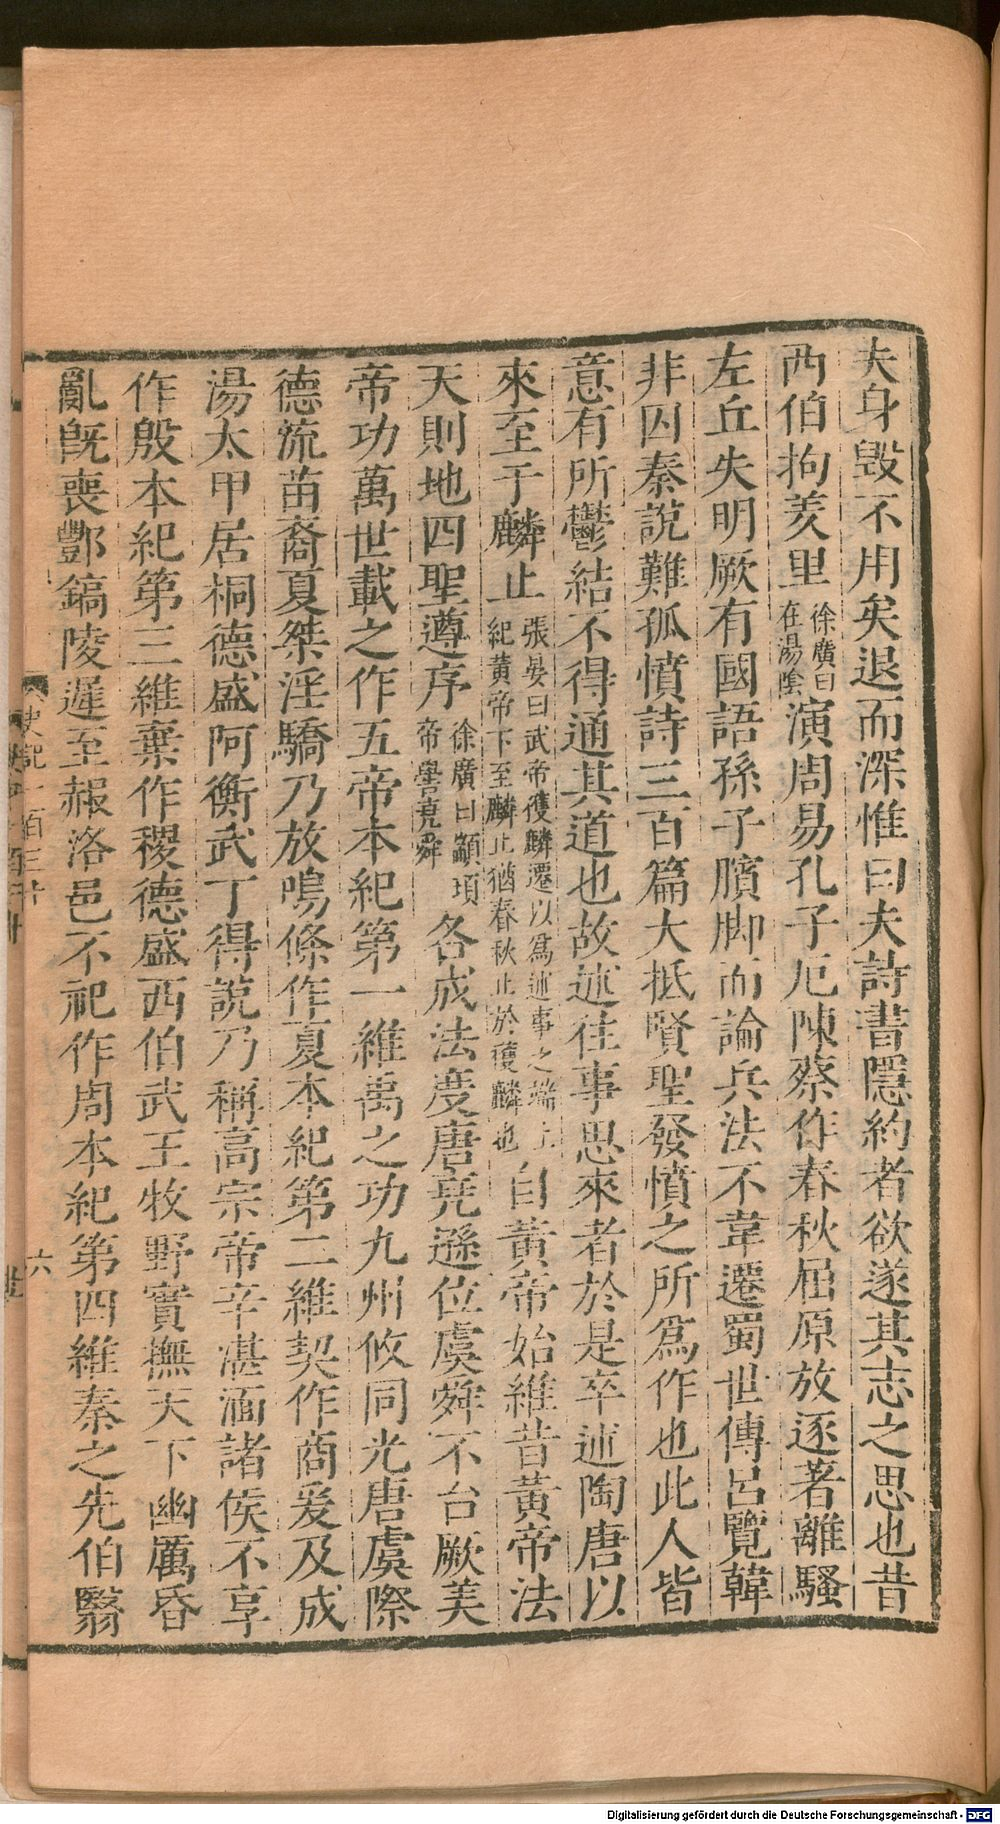 夫身毁不用矣退而深惟曰夫詩書隱約者欲遂其志之思也昔
西伯拘羑里徐廣曰在湯陰演周易孔子厄陳蔡作春秋屈原放逐著離騷
左丘失明厥有國語孫子臏脚而論兵法不韋遷蜀世傳呂覽韓
非囚秦說難孤憤詩三百篇大抵賢聖發憤之所爲作也此人皆
意有所鬱結不得通其道也故述往事思來者於是卒述陶唐以
來至于麟止張晏曰武帝獲麟遷以爲述事之端上紀黃帝下至麟止猶春秋止於獲麟也自黃帝始維昔黃帝法
天則地四聖遵序徐廣曰顓頊帝嚳堯舜各成法度唐堯遜位虞舜不台厥美
帝功萬世載之作五帝本紀第一維禹之功九州攸同光唐虞際
德流苗裔夏桀淫驕乃放鳴條作夏本紀第二維契作商爰及成
湯太甲居桐德盛阿衡武丁得說乃稱高宗帝辛湛湎諸侯不享
作殷本紀第三維棄作稷德盛西伯武王牧野實撫天下幽厲昏
亂旣喪酆鎬陵遲至赧洛邑不祀作周本紀第四維秦之先伯翳
史記一百三十
六
Digitalisierung gefördert durch die Deutsche Forschungsgemeinschaft - DFG